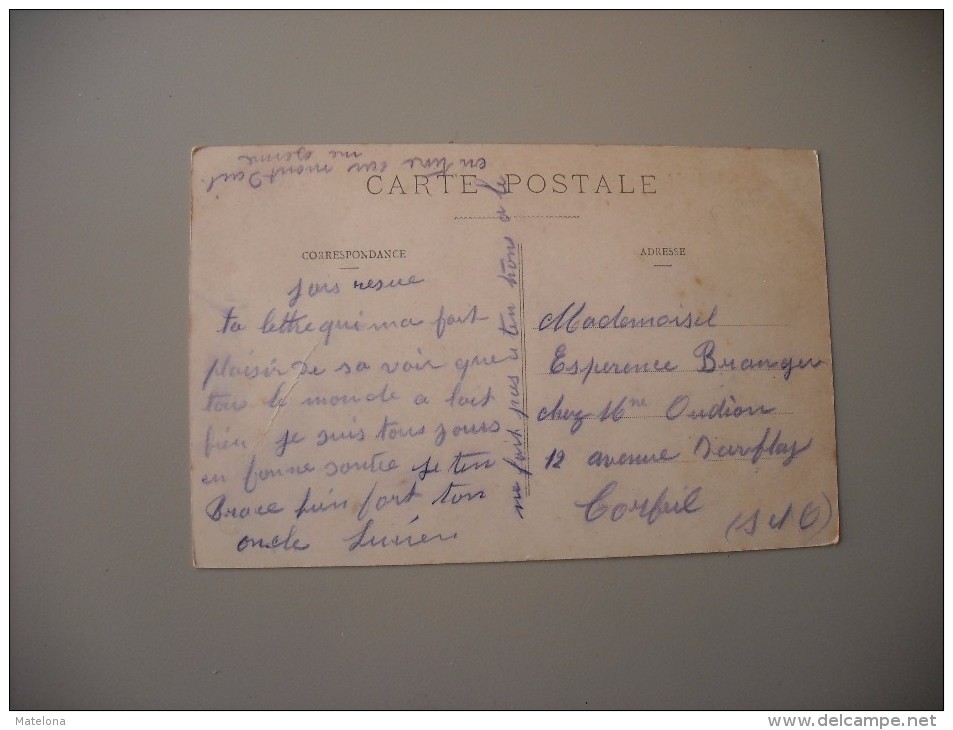 CARTE POSTALE
CORRESPONDANCE
jais resue
ta lettre qui ma fait
plaisir de sa voir que
tous le monde a lait
bien je suis tous jours
en bonne santee je ten
Brace bien fort ton
oncle Lucien
ne fait pas a ten tion a le
en
me
ADRESSE
Mademoisel
Esperence Branger
chez Mme Oudion
12 avenue Darblay
Corbeil
(S et O)
Matelona
www.delcampe.net